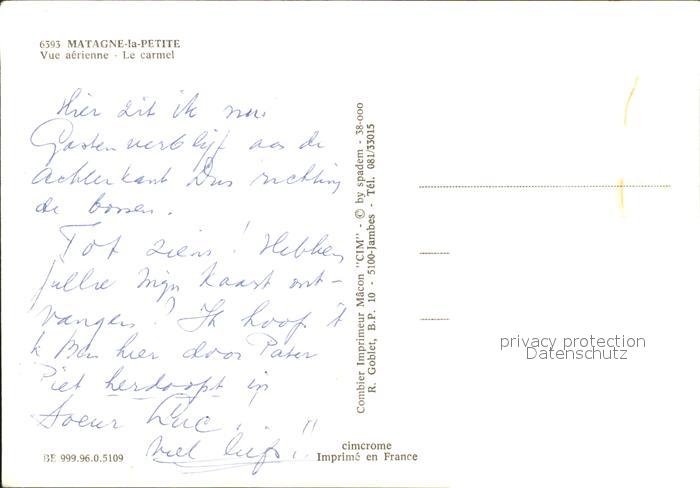 6393 MATAGNE-la-PETITE
Vue aérienne - Le carmel
Hier zit ik nu.
Gastenverblijf aan de
achterkant Dus richting
de bossen.
Tot ziens! Hebben
jullie mijn kaart ont-
vangen? Ik hoop 't
k ben hier door Pater
Piet herdoopt in
Soeur Luc!..
Veel liefs!!
BE 999.96.0.5109
Combier Imprimeur Mâcon "CIM" - © by spadem - 38-000
R. Goblet, B.P. 10 - 5100-Jambes - Tél. 081/33015
cimcrome
Imprimé en France
privacy protection
Datenschutz